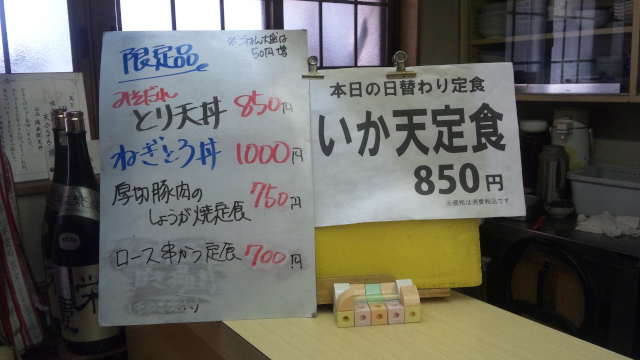 限定品
※ごはん大盛は
50円増
みそだれ
とり天丼 850円
ねぎとろ丼 1000円
厚切豚肉の
しょうが焼定食 750円
ロース串かつ定食 700円
本日の日替わり定食
いか天定食
850円
※価格は消費税込です